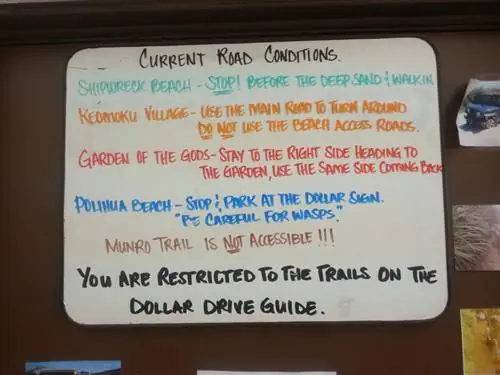 CURRENT ROAD CONDITIONS.
SHIPWRECK BEACH - STOP! BEFORE THE DEEP SAND & WALK IN.
KEOMOKU VILLAGE - USE THE MAIN ROAD TO TURN AROUND
DO NOT USE THE BEACH ACCESS ROADS.
GARDEN OF THE GODS - STAY TO THE RIGHT SIDE HEADING TO
THE GARDEN, USE THE SAME SIDE COMING BACK
POLIHUA BEACH - STOP & PARK AT THE DOLLAR SIGN.
"BE CAREFUL FOR WASPS."
MUNRO TRAIL IS NOT ACCESSIBLE !!!
YOU ARE RESTRICTED TO THE TRAILS ON THE
DOLLAR DRIVE GUIDE.